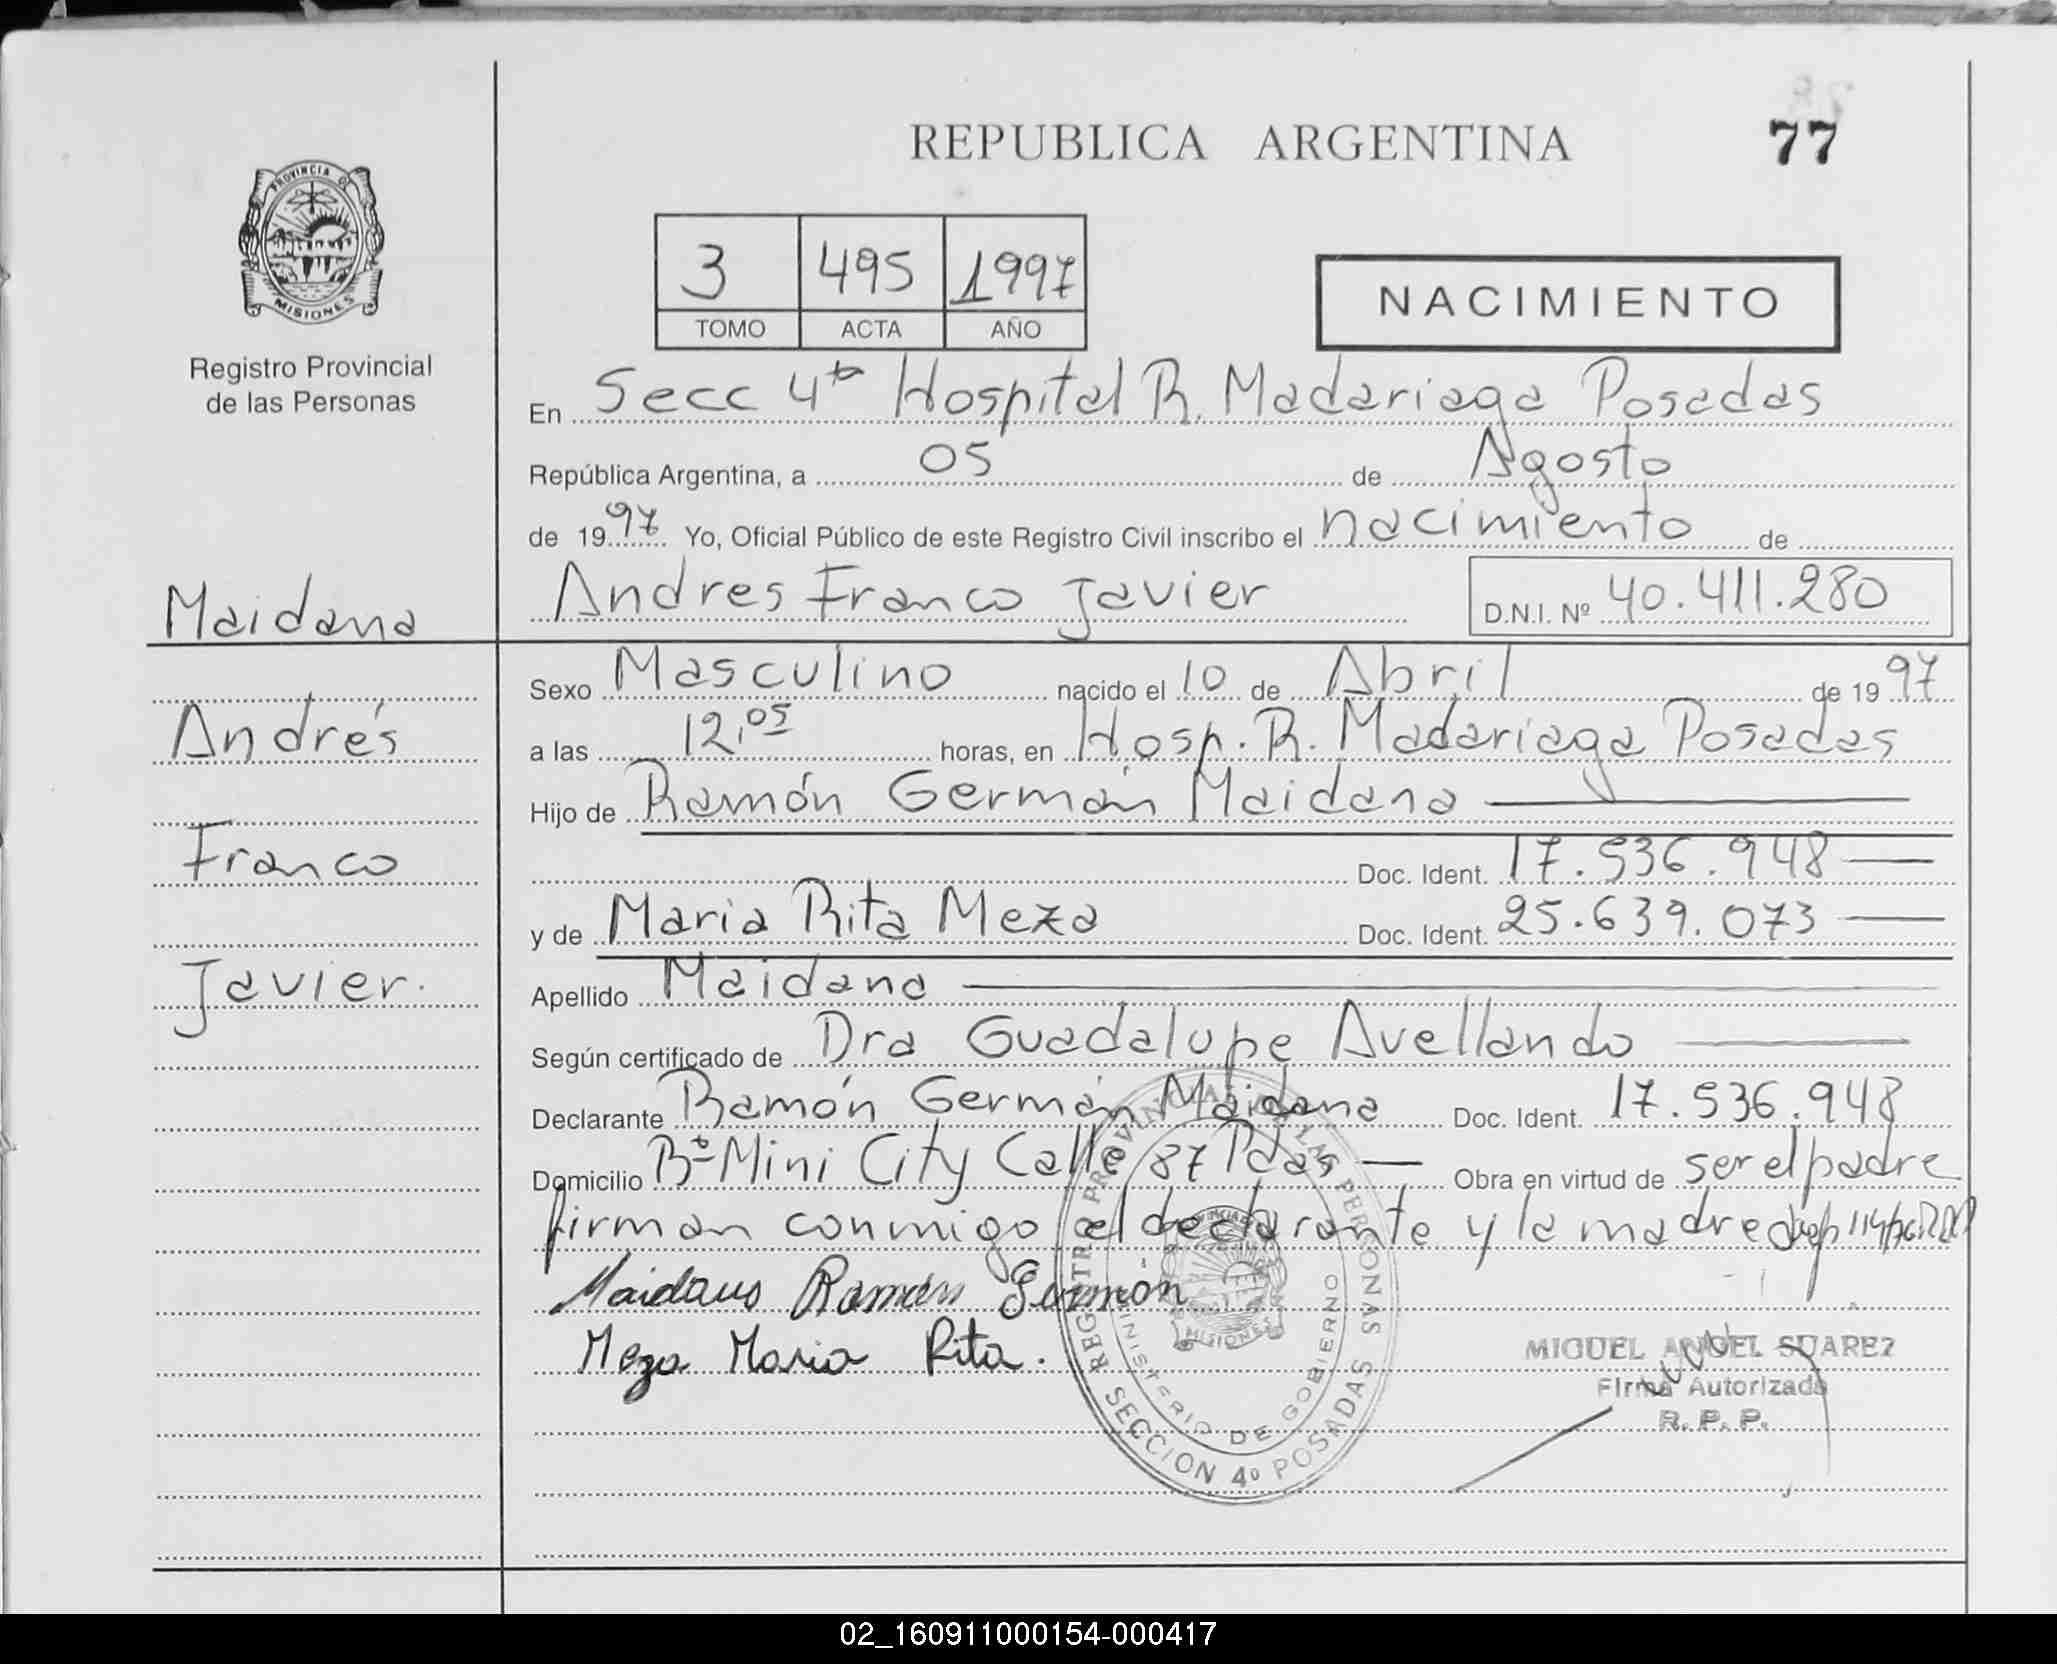 REPUBLICA ARGENTINA
77
PROVINCIA D
MISIONES
Registro Provincial
de las Personas
3 495 1997
TOMO ACTA AÑO
NACIMIENTO
En Secc 4ta Hospital R. Madariaga Posadas
República Argentina, a 05 de Agosto
de 1997 Yo, Oficial Público de este Registro Civil inscribo el nacimiento de
Andres Franco Javier D.N.I. Nº 40.411.280
Maidana
Andrés
Franco
Javier.
Sexo Masculino nacido el 10 de Abril de 1997
a las 12,05 horas, en Hosp. R. Madariaga Posadas
Hijo de Ramón Germán Maidana
Doc. Ident. 17.536.948
y de Maria Rita Meza Doc. Ident. 25.639.073
Apellido Maidana
Según certificado de Dra Guadalupe Avellando
Declarante Ramón Germán Maidana Doc. Ident. 17.536.948
Domicilio Bº Mini City Calle 87 Pdas Obra en virtud de ser el padre
firman conmigo el declarante y la madre
Maidana Ramón Germón
Meza Maria Rita.
REGISTRO PROVINCIAL DE LAS PERSONAS
MINISTERIO DE GOBIERNO
SECCION 4º POSADAS
MISIONES
MIGUEL ANGEL SUAREZ
Firma Autorizada
R. P. P.
02_160911000154-000417